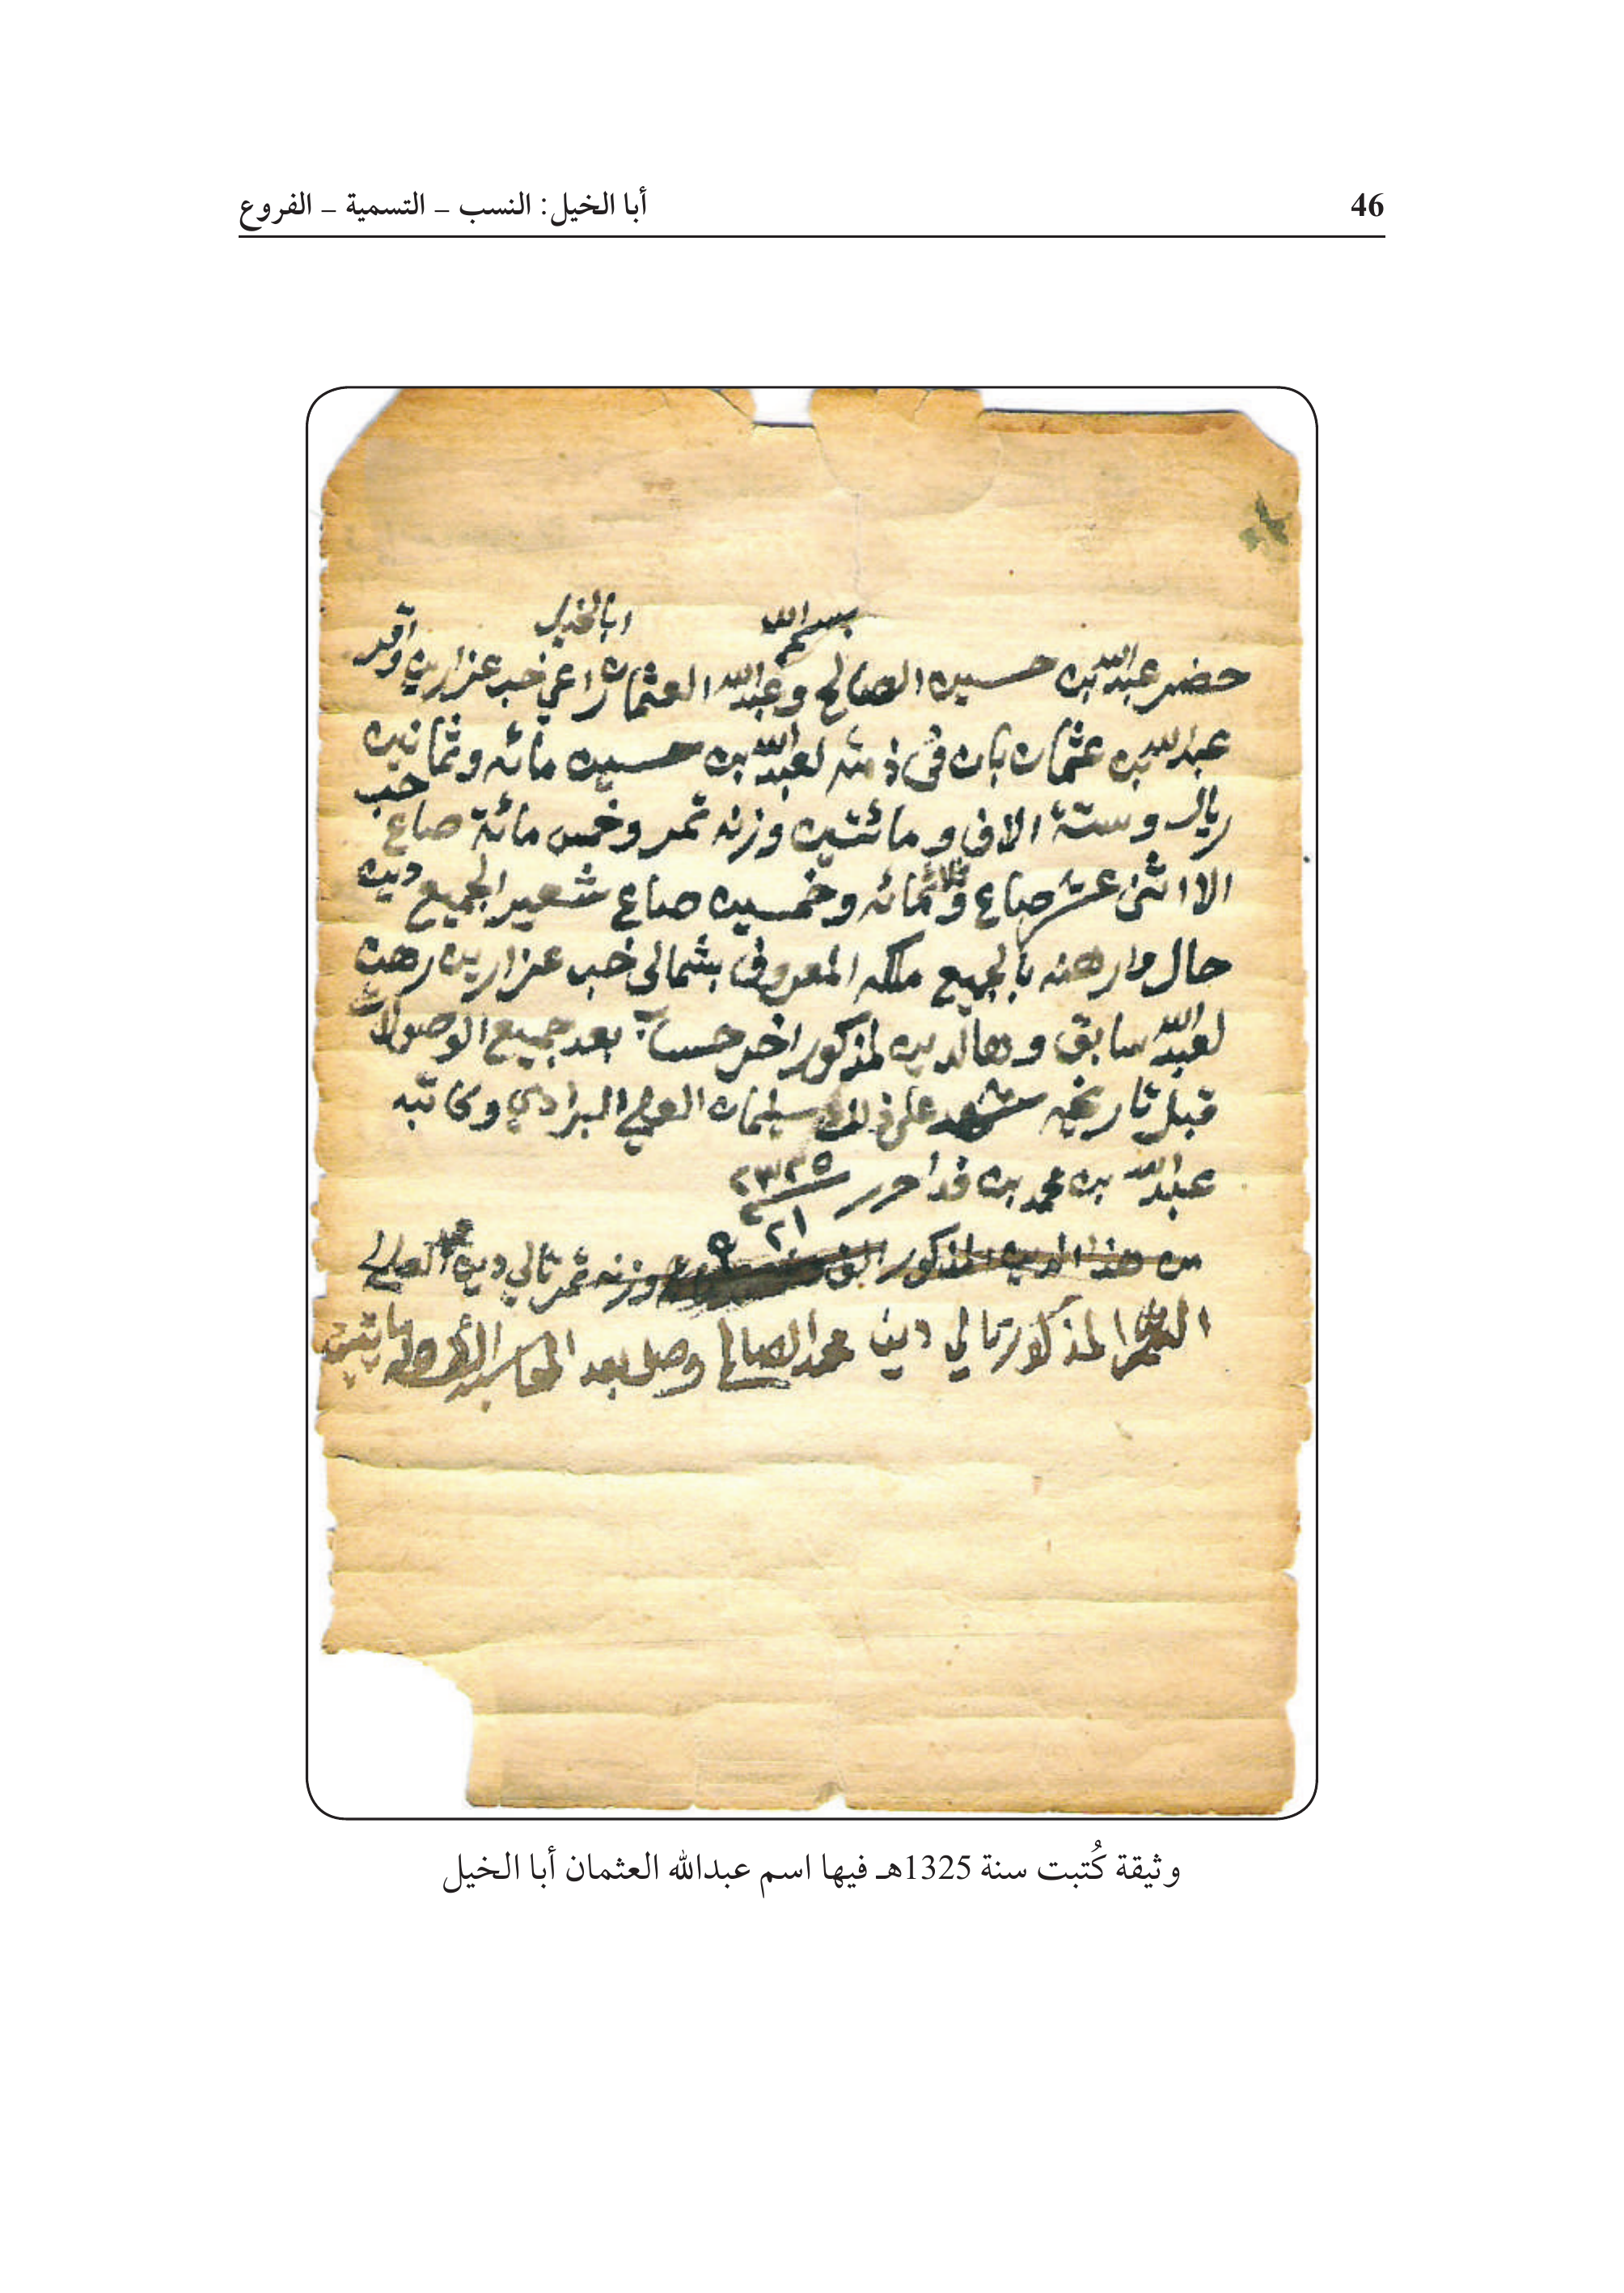 46
أبا الخيل: النسب – التسمية – الفروع
بسم الله
ابا الخيل
حضر عبدالله بن حسين الصالح وعبدالله العثمان راعي خب عزارين واقر
عبدالله بن عثمان بان في ذمته لعبدالله بن حسين مائه وثمانين
ريال وستة الاف ومائتين وزنه تمر وخمس مائة صاع حب
الا اثنى عشر صاع وثلاثمائه وخمسين صاع شعير الجميع دين
حال وارهنه بالجميع ملكه المعروف بشمالي خب عزارين رهن
لعبدالله سابق وهالدين لمذكور اخر حساب بعد جميع الوصولات
قبل تاريخه شهد على ذلك سليمان العلي البرادي وكاتبه
عبدالله بن محمد بن فدا حرر
من هذا الدين المذكور الف وزنه تمر تالي دين محمد الصالح
المذكور تالي دين محمد الصالح وصل بعد
وثيقة كُتبت سنة 1325هـ فيها اسم عبدالله العثمان أبا الخيل